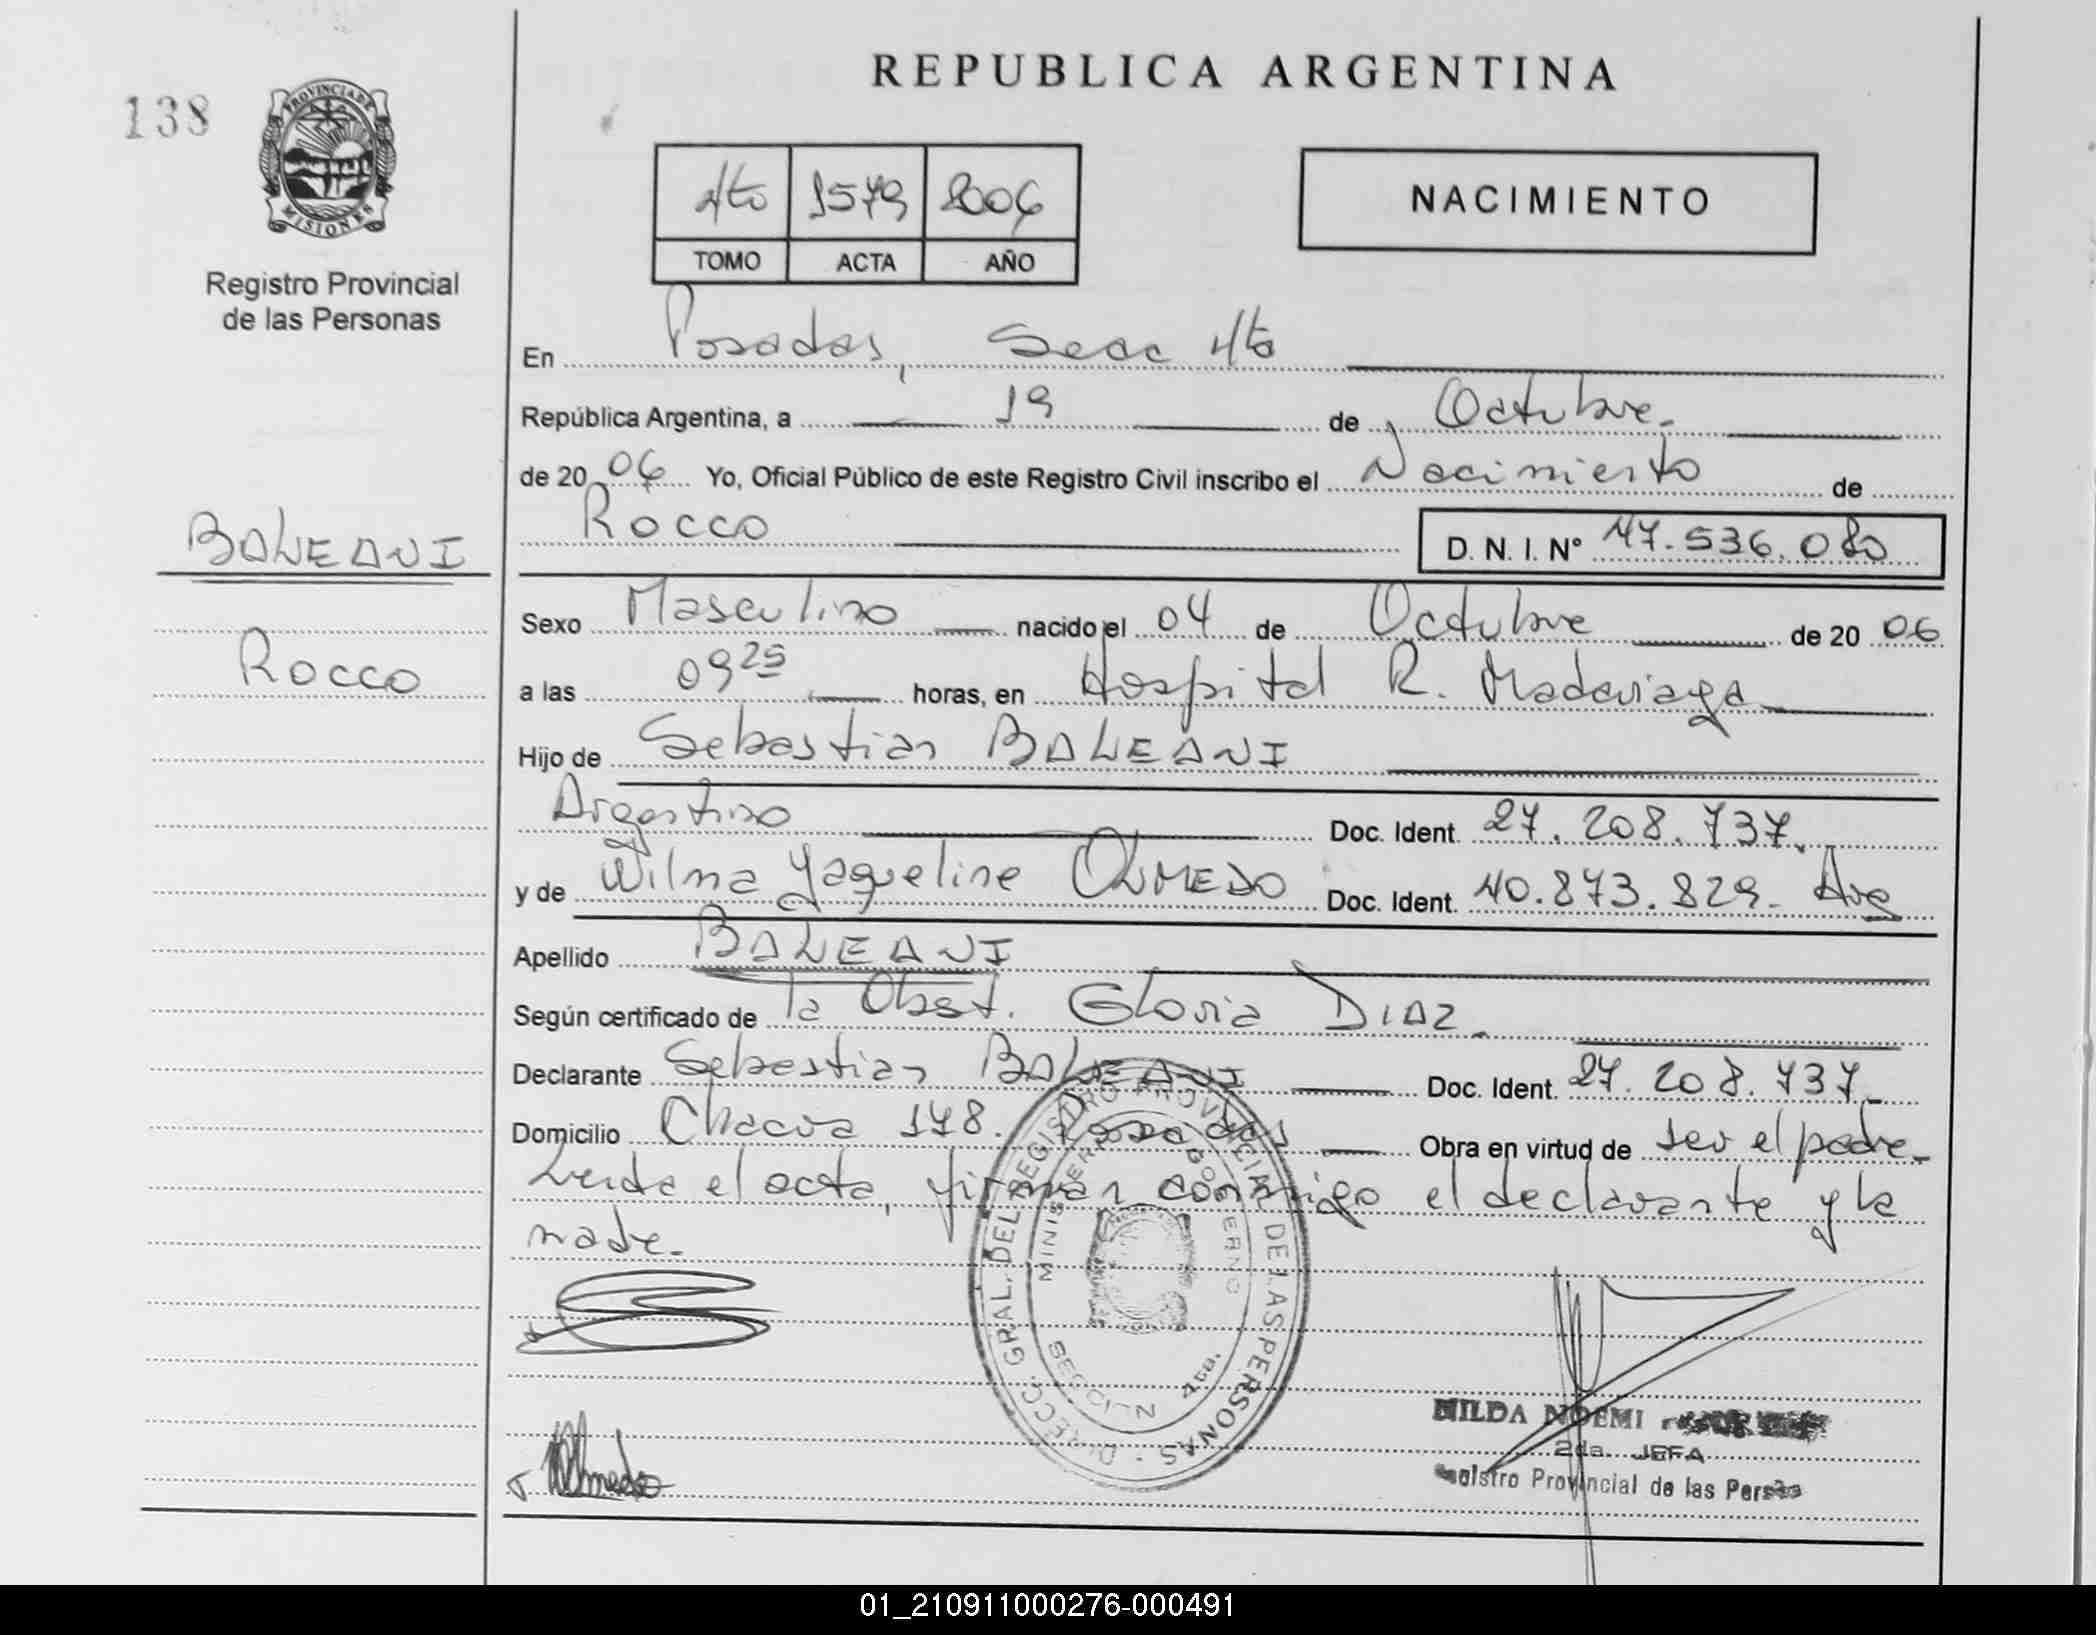 REPUBLICA ARGENTINA
138
PROVINCIA DE
MISIONES
Registro Provincial
de las Personas
4to 1579 2006
TOMO ACTA AÑO
NACIMIENTO
En Posadas, Secc 4to
República Argentina, a 19 de Octubre.
de 20 06 Yo, Oficial Público de este Registro Civil inscribo el Nacimiento de
Rocco D. N. I. Nº 47.536.080
BALEANI
Rocco
Sexo Masculino nacido el 04 de Octubre de 20 06
a las 09 25 horas, en Hospital R. Madariaga
Hijo de Sebastian BALEANI
Argentino Doc. Ident. 27.208.737.
y de Wilma Yaqueline OLMEDO Doc. Ident. 40.873.829. Arg
Apellido BALEANI
Según certificado de la Obst. Gloria DIAZ.
Declarante Sebastian BALEANI Doc. Ident. 27.208.737.
Domicilio Chacra 178. Posadas Obra en virtud de ser el padre.
Leida el acta, firman conmigo el declarante y la
madre.
DIRECC. GRAL. DEL REGISTRO PROVINCIAL DE LAS PERSONAS
MINISTERIO GOBIERNO
SECCION 4ta.
Olmedo
HILDA NOEMI
2da. JEFA
Registro Provincial de las Personas
01_210911000276-000491